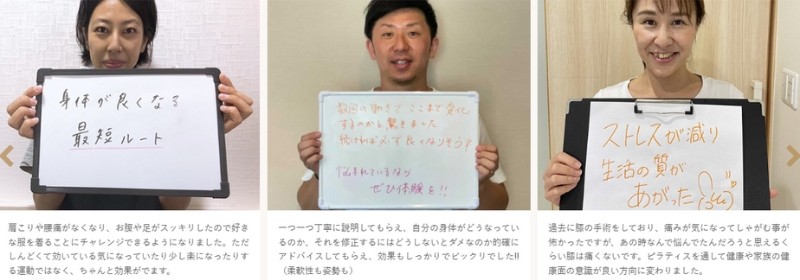 身体が良くなる
最短ルート
数回の動きでここまで変化
するのかと驚きました
続ければ必ず良くなりそう?
悩まれているなら
ぜひ体験を!!
ストレスが減り
生活の質が
あがった
肩こりや腰痛がなくなり、お腹や足がスッキリしたので好き
な服を着ることにチャレンジできるようになりました。ただ
しんどくて効いている気になっていたり少し楽になったりす
る運動ではなく、ちゃんと効果がでます。
一つ一つ丁寧に説明してもらえ、自分の身体がどうなってい
るのか、それを修正するにはどうしないとダメなのか的確に
アドバイスしてもらえ、効果もしっかりでビックリでした!!
（柔軟性も姿勢も）
過去に膝の手術をしており、痛みが気になってしゃがむ事が
怖かったですが、あの時なんで悩んでたんだろうと思えるく
らい膝は痛くないです。ピラティスを通して健康や家族の健
康面の意識が良い方向に変わりました。